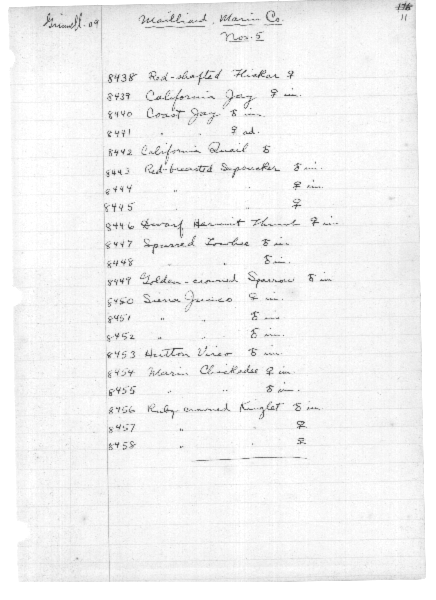 Grinnell-09 Mailliard, Marin Co. 11
Nov. 5
8438 Red-shafted Flicker ♀
8439 California Jay ♀ im.
8440 Coast Jay ♂ im.
8441 " " ♀ ad.
8442 California Quail ♂
8443 Red-breasted Sapsucker ♂ im.
8444 " " ♀ im.
8445 " " ♀
8446 Dwarf Hermit Thrush ♀ im.
8447 Spurred Towhee ♂ im.
8448 " " ♂ im.
8449 Golden-crowned Sparrow ♂ im
8450 Sierra Junco ♀ im.
8451 " " ♂ im
8452 " " ♂ im.
8453 Hutton Vireo ♂ im.
8454 Marin Chickadee ♀ im.
8455 " " ♂ im.
8456 Ruby-crowned Kinglet ♂ im.
8457 " " ♀
8458 " " ♀